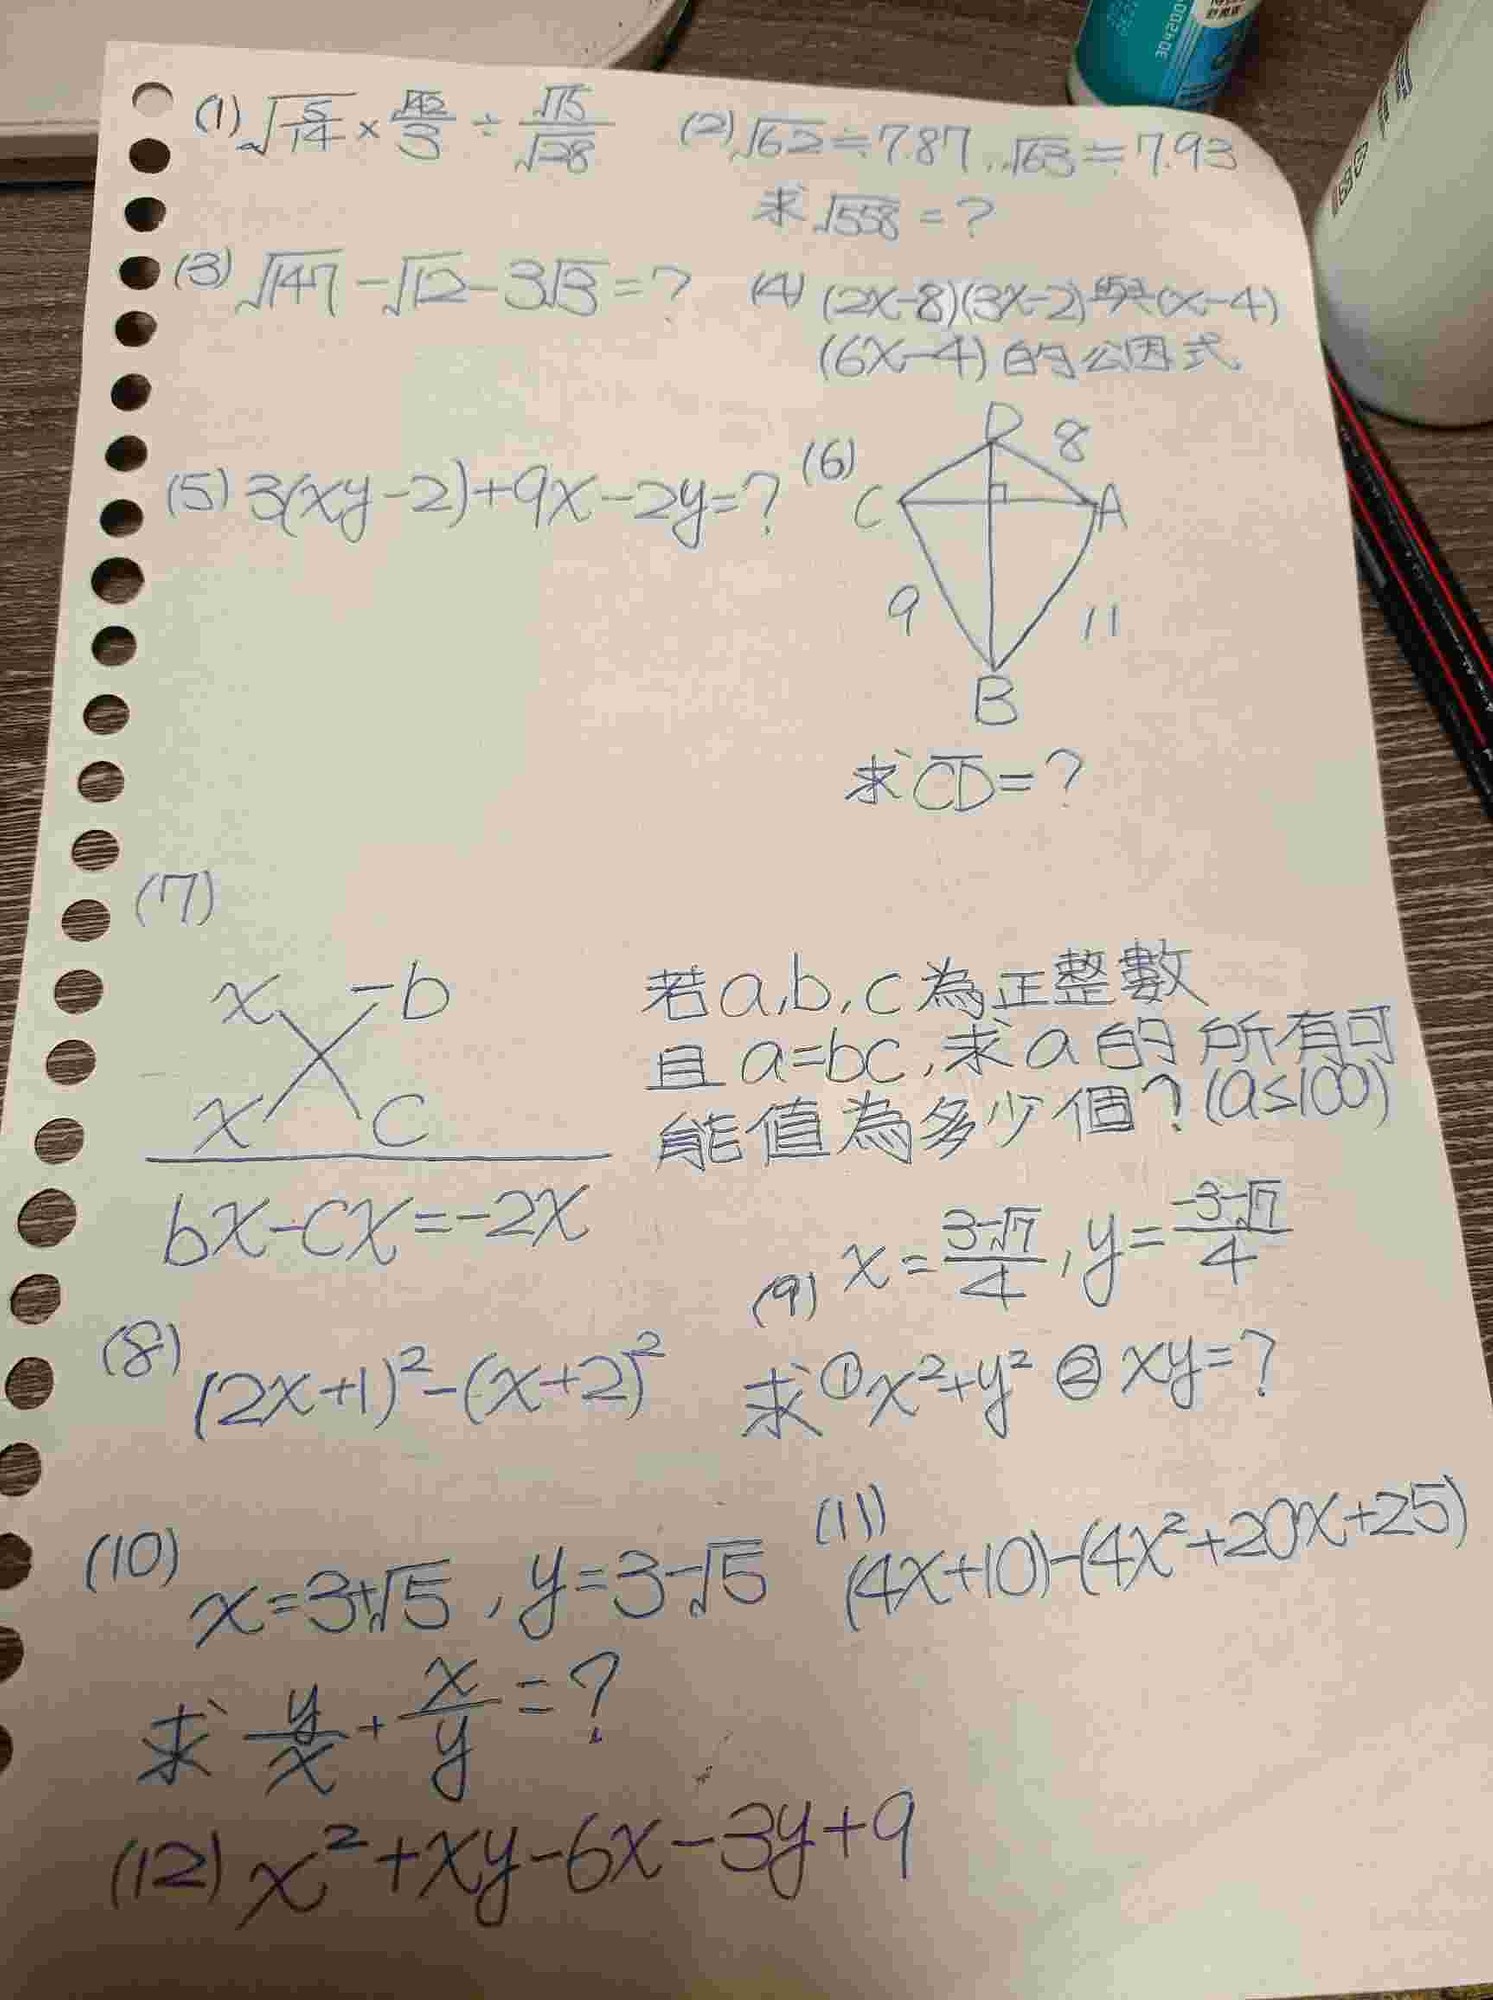 (1) √(5/14) × √42/3 ÷ √15/√28
(2) √62≒7.87...√63≒7.93
求√558=?
(3) √147-√12-3√3=?
(4) (2x-8)(3x-2)與(x-4)
(6x-4)的公因式
(5) 3(xy-2)+9x-2y=?
(6)
D
8
C
A
9
11
B
求CD=?
(7)
x -b
x c
bx-cx=-2x
若a,b,c為正整數
且a=bc,求a的所有可
能值為多少個?(a≤100)
(8) (2x+1)²-(x+2)²
(9) x=(3-√7)/4, y=(-3-√7)/4
求①x²+y² ②xy=?
(10) x=3+√5, y=3-√5
求 y/x + x/y =?
(11) (4x+10)-(4x²+20x+25)
(12) x²+xy-6x-3y+9
304200